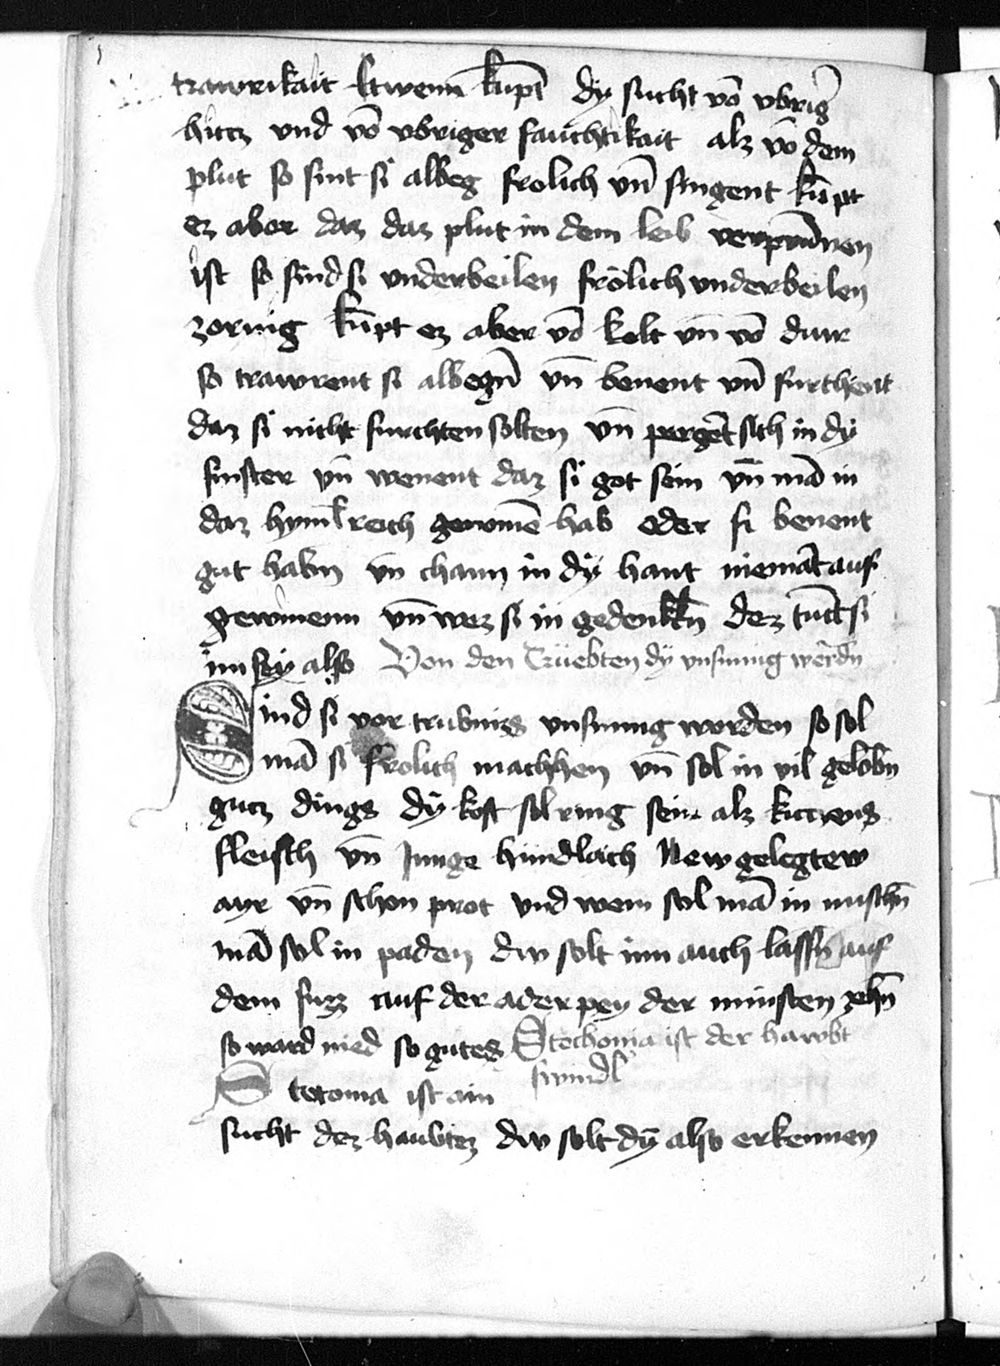 trawrikait Etwenn kūpt dy sucht vō vbriḡ
hicz vnd vō vbriger fauchtikait alz vō dem
plut so sint si albeg frolich vn̄ singent kūpt
ez aber daz daz plut in dem leib verprūnen
ist so sind si vnderbeilen frölich vnderbeilen
zornig kūpt ez aber vō kelt vn̄ vō durr
so trawrent si albegn̄ vn̄ benent vn̄ furchent
daz si nicht furchten solten vn̄ pergēt sich in dy
finster vn̄ wenent daz si got sein vn̄ mā in
daz hymlreich genomē hab oder si benent
gut habn̄ vn̄ chann in dy hant niemāt auf
gewinenn vn̄ wez si in gedenkkn̄ dez tuct si
im sey also Von den Trüebten dy vnsinnig werdn̄
Sind si vor trubnizz vnsinnig worden so sol
mā si frolich machhen vn̄ sol in vil gelobn̄
gucz dings dy kost sol ring sein alz kiczens
fleisch vn̄ Junge hündlach New gelegtew
ayr vn̄ schon prot vnd wein sol mā in mischn̄
mā sol in paden dw solt im auch lassn̄ auf
dem fuzz auf der ader pey der minsten zehn̄
so ward nied so gutes Stochomia ist der hawbt
swindl
Stotoma ist ain
sucht dez haubtez dw solt dy also erkennen